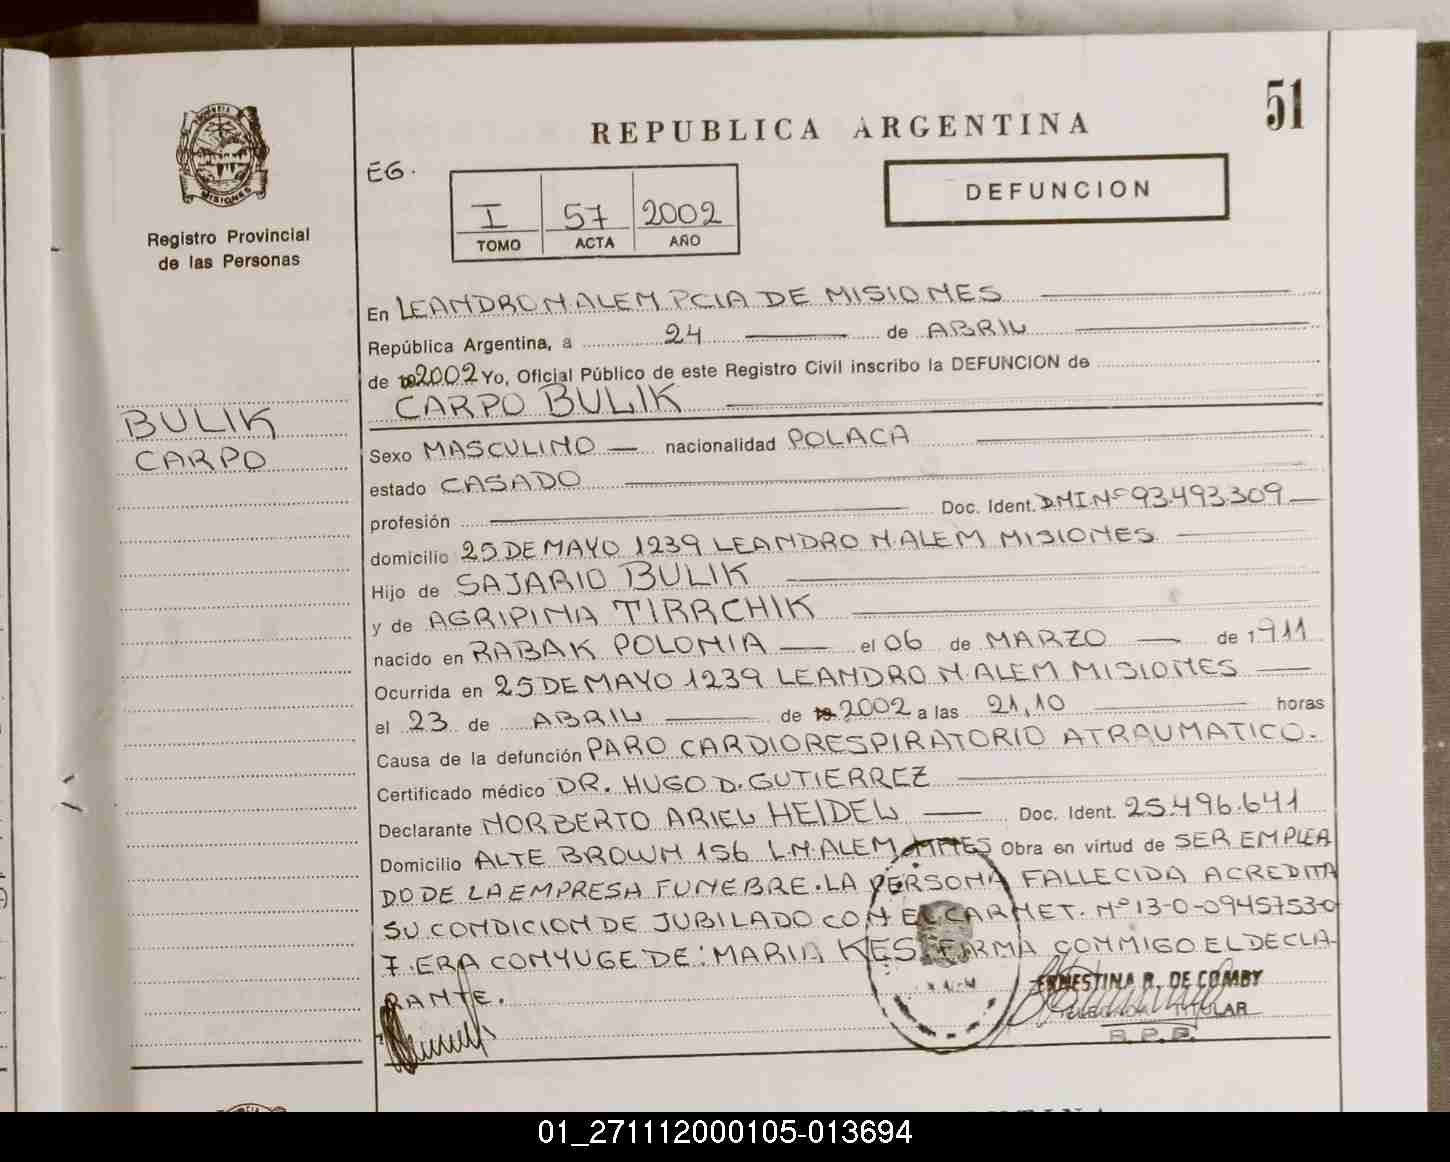 51
REPUBLICA ARGENTINA
EG.
DEFUNCION
I 57 2002
TOMO ACTA AÑO
MISIONES
Registro Provincial
de las Personas
BULIK
CARPO
En LEANDRO N. ALEM PCIA DE MISIONES
República Argentina, a 24 de ABRIL
de 2002 Yo, Oficial Público de este Registro Civil inscribo la DEFUNCION de
CARPO BULIK
Sexo MASCULINO nacionalidad POLACA
estado CASADO
profesión Doc. Ident. D.N.I Nº 93.493.309
domicilio 25 DE MAYO 1239 LEANDRO N. ALEM MISIONES
Hijo de SAJARIO BULIK
y de AGRIPINA TIRRCHIK
nacido en RABAK POLONIA el 06 de MARZO de 1911
Ocurrida en 25 DE MAYO 1239 LEANDRO N. ALEM MISIONES
el 23 de ABRIL de 2002 a las 21,10 horas
Causa de la defunción PARO CARDIORESPIRATORIO ATRAUMATICO.
Certificado médico DR. HUGO D. GUTIERREZ
Declarante NORBERTO ARIEL HEIDEL Doc. Ident. 25.496.641
Domicilio ALTE BROWN 156 L.N. ALEM MNES Obra en virtud de SER EMPLEA
DO DE LA EMPRESA FUNEBRE. LA PERSONA FALLECIDA ACREDITA
SU CONDICION DE JUBILADO CON EL CARNET. Nº 13-0-0945753-0
7. ERA CONYUGE DE: MARIA KES. FIRMA CONMIGO EL DECLA-
RANTE.
ERNESTINA R. DE COMBY
TITULAR
R. P. P.
01_271112000105-013694